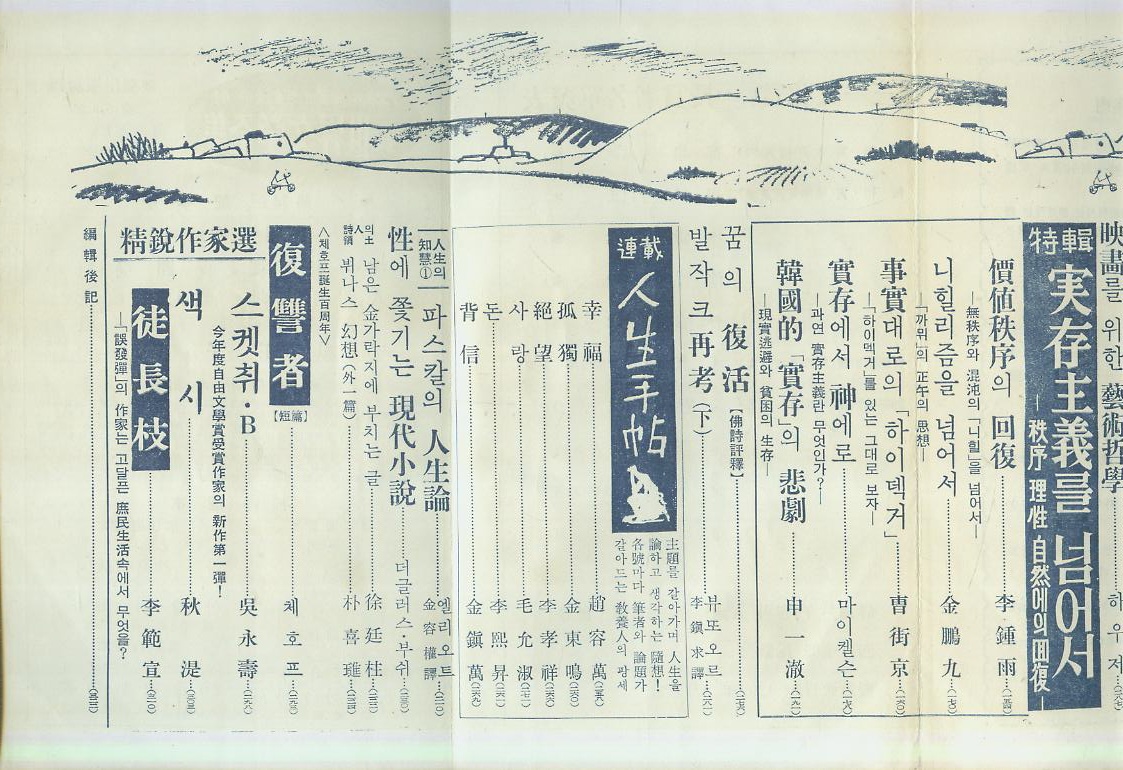 映畫를 위한 藝術哲學
하우저
特輯
実存主義를 넘어서
—秩序 理性 自然에의 回復—
價値秩序의 回復
—無秩序와 混沌의「니힐」을 넘어서—
李鍾雨
니힐리즘을 넘어서
—「까뮈」의 正午의 思想—
金鵬九
事實대로의「하이덱거」
—「하이덱거」를 있는 그대로 보자—
曺街京
實存에서 神에로
—과연 實存主義란 무엇인가?—
마이켈슨
韓國的「實存」의 悲劇
—現實逃避와 貧困의 生存—
申一澈
꿈의 復活【佛詩評釋】
발작크 再考(下)
뷰또오르
李鎭求譯
連載
人生手帖
主題를 갈아가며 人生을
論하고 생각하는 隨想!
各號마다 筆者와 論題가
갈아드는 敎養人의 광세
幸福 趙容萬
孤獨 金東鳴
絕望 李孝祥
사랑 毛允淑
돈 李熙昇
背信 金鎭萬
人生의 知慧①
파스칼의 人生論
엘리오트
金容權譯
性에 쫓기는 現代小說
더글러스·부쉬
남은 金가락지에 부치는 글 徐廷柱
뷔나스 幻想(外一篇) 朴喜璡
<체호프誕生百周年>
復讐者【短篇】
체호프
精銳作家選
스켓취·B
今年度自由文學賞受賞作家의 新作第一彈!
吳永壽
색시
秋湜
徒長枝
—「誤發彈」의 作家는 고달픈 庶民生活속에서 무엇을?
李範宣
編輯後記